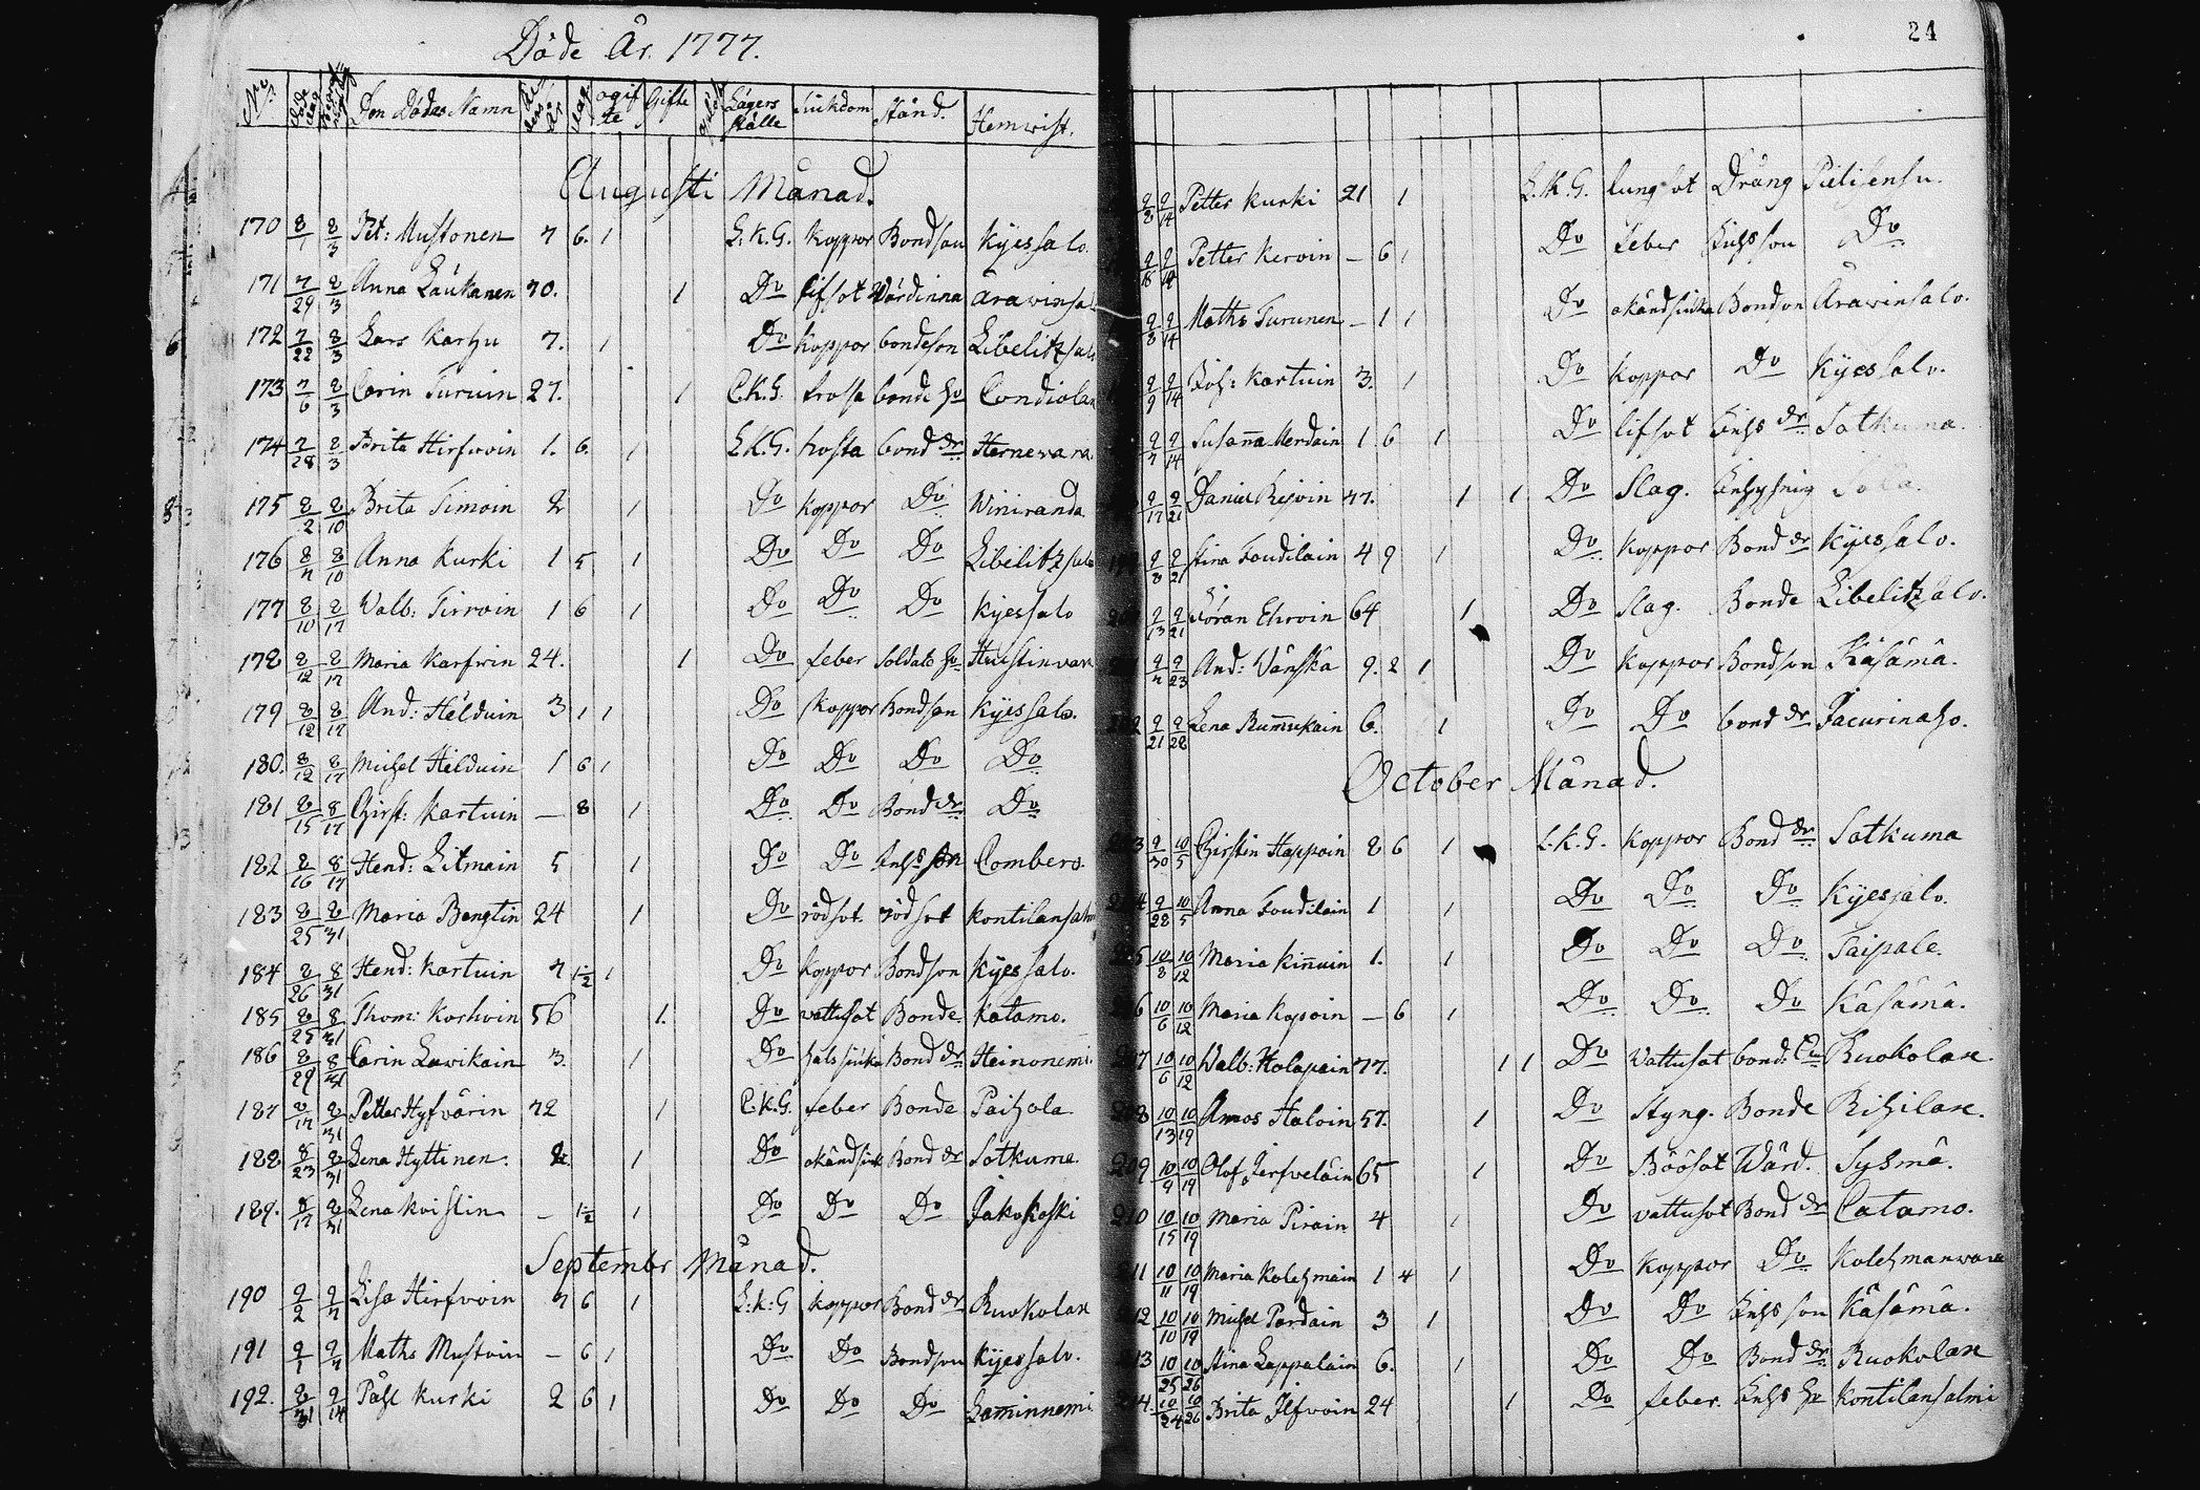 Döde År. 1777.
No. Den Dödas Namn ogifte Gifte Lägers ställe Siukdom Stånd. Hemwist.
Augusti Månad.
170 8/1 8/3 Pet: Mustonen 7 6. 1 L.K.G. Koppor Bondson Kyessalo.
171 7/29 8/3 Anna Laukanen 70. 1 Do lifsot Wärdinna Arawinsal
172 7/22 8/3 Lars Karhu 7. 1 Do Koppor bondeson Libelitzsalo
173 7/6 8/3 Carin Turuin 27. 1 C.K.G. frossa bonde hu Condiolax
174 7/28 8/3 Brita Hirfwoin 1. 6. 1 L.K.G. hosta bond dr Hernevara
175 8/2 8/10 Brita Simoin 2 1 Do Koppor Do Winiranda
176 8/4 8/10 Anna Kurki 1 5 1 Do Do Do Libelitzsalo
177 8/10 8/17 Walb: Tirroin 1 6 1 Do Do Do Kyessalo
178 8/12 8/17 Maria Karfwin 24. 1 Do feber Soldats hu
179 8/12 8/17 And: Hälduin 3 1 1 Do Koppor Bondson Kyessalo.
180. 8/12 8/17 Michel Hälduin 1 6 1 Do Do Do Do
181 8/15 8/17 Christ: Kartuin — 8 1 Do Do Bond dr Do
182 8/16 8/17 Hend: Litmain 5 1 Do Do Inhs son Combero
183 8/25 8/31 Maria Bengtin 24 1 Do rödsot. rödsot Kontilansalmi
184 8/26 8/31 Hend: Kartuin 7 1/2 1 Do Koppor Bondson Kyessalo.
185 8/25 8/31 Thom: Korhoin 56 1. Do wattusot Bonde Katamo.
186 8/29 8/31 Carin Lawikain 3. 1 Do halssiuka Bond dr Heinonemi
187 8/17 8/31 Petter Hyfvärin 72 1 C.K.G. feber Bonde Paihola
188 8/23 8/31 Lena Hyttinen. 1 Do okändsiuk Bond dr Sotkuma
189. 8/17 8/31 Lena Koistin — 1/2 1 Do Do Do Jakokoski
Septembr Månad.
190 9/2 9/7 Lisa Hirfwoin 7 6 1 L:K:G Koppor Bond dr Ruokolax
191 9/1 9/7 Maths Mustoin — 6 1 Do Do Bondson Kyessalo.
192. 8/31 9/14 Påhl Kurki 2 6 1 Do Do Do Laminnemi
24
9/8 9/14 Petter Kurki 21 1 L.K.G. lungsot Dräng Pielisensu.
9/14 Petter Kervin — 6 1 Do Feber Inhsson Do
9/8 9/14 Maths Turunen — 1 1 Do okändsiuka Bondson Arawinsalo.
9/9 9/14 Joh: Kartuin 3. 1 Do Koppor Do Kyessalo.
9/7 9/14 Susanna Merdain 1 6 1 Do lifsot Inhs dr Sotkuma.
9/17 9/21 Daniel 77. 1 1 Do Slag.
9/8 9/21 Stina Toudilain 4 9 1 Do Koppor Bond dr Kyessalo.
9/13 9/21 Jöran Ehroin 64 1 Do Slag. Bonde Libelitzsalo.
9/23 And: Vänskä 9. 2 1 Do Koppor Bondson Käsämä.
9/21 9/28 Lena Rummukain 6. 1 Do Do bond dr Jacurinaho.
October Månad.
9/30 10/5 Christin Happoin 2 6 1 L.K.G. Koppor Bond dr Sotkuma
9/28 10/5 Anna Toudilain 1 1 Do Do Do Kyessalo.
10/8 10/12 Maria Kinnuin 1. 1 Do Do Do Taipale.
10/6 10/12 Maria Kopoin — 6 1 Do Do Do Käsämä.
10/6 10/12 Walb: Holapain 77. 1 1 Do Wattusot Ruokolax.
10/13 10/19 Amos Haloin 57. 1 Do Styng. Bonde Rihilax.
209 10/9 10/19 Olof Jerfveläin 65 1 Do Wärd. Sysmä.
210 10/15 10/19 Maria Pirain 4 1 Do vattusot Bond dr Catamo.
211 10/11 10/19 Maria Kolehmain 1 4 1 Do Koppor Do Kolehmanwara
212 10/10 10/19 Michel Pardain 3 1 Do Do Inhs son Käsämä.
213 10/25 10/26 Stina Lappalain 6. 1 Do Do Bond dr Ruokolax
214. 10/24 10/26 Brita Ilfwoin 24 1 Do feber. Inhs hu Kontilansalmi